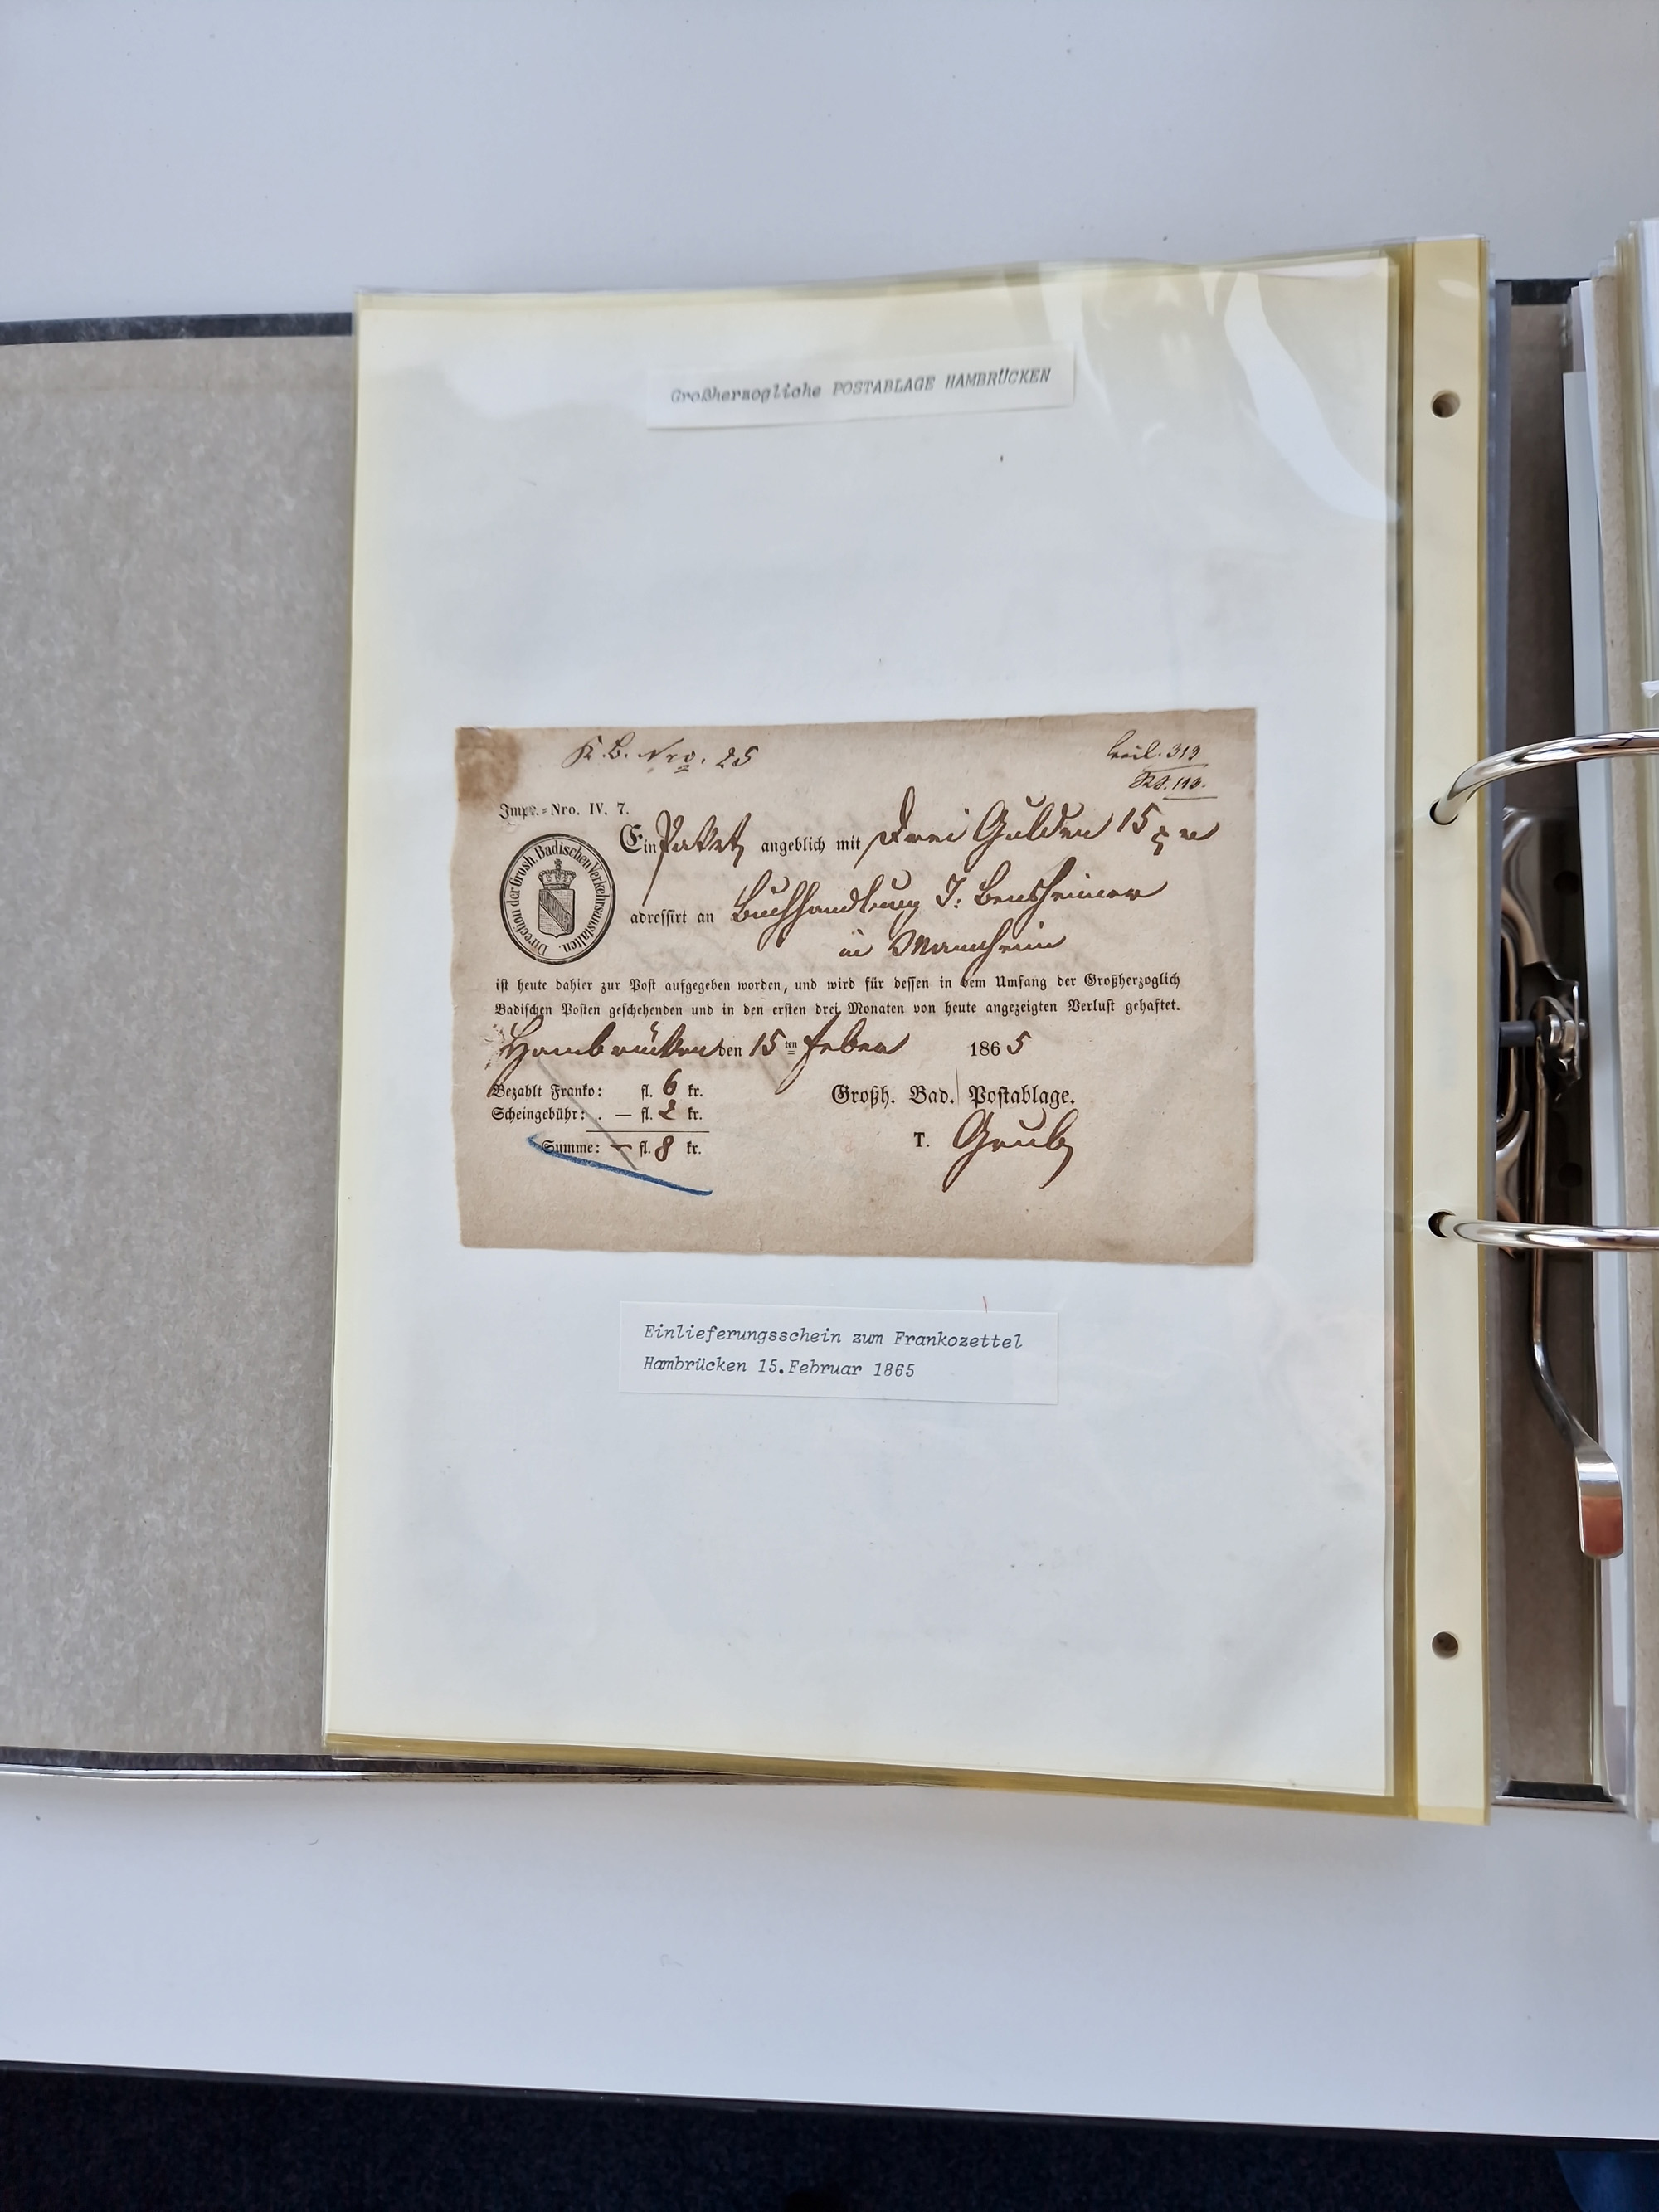 Großherzogliche POSTABLAGE HAMBRÜCKEN
K. B. Nro. 25
beil. 319
RS. 113.
Impr.=Nro. IV. 7.
Direction der Grosh. Badischen Verkehrsanstalten.
Ein Paket angeblich mit Drei Gulden 15 xr
adressirt an Buchhandlung J. Bensheimer
in Mannheim
ist heute dahier zur Post aufgegeben worden, und wird für dessen in dem Umfang der Großherzoglich
Badischen Posten geschehenden und in den ersten drei Monaten von heute angezeigten Verlust gehaftet.
Hambrücken den 15ten Feber 1865
Bezahlt Franko: fl. 6 kr.
Großh. Bad. Postablage.
Scheingebühr: . — fl. 2 kr.
Summe: — fl. 8 kr.
T. Grub
Einlieferungsschein zum Frankozettel
Hambrücken 15.Februar 1865